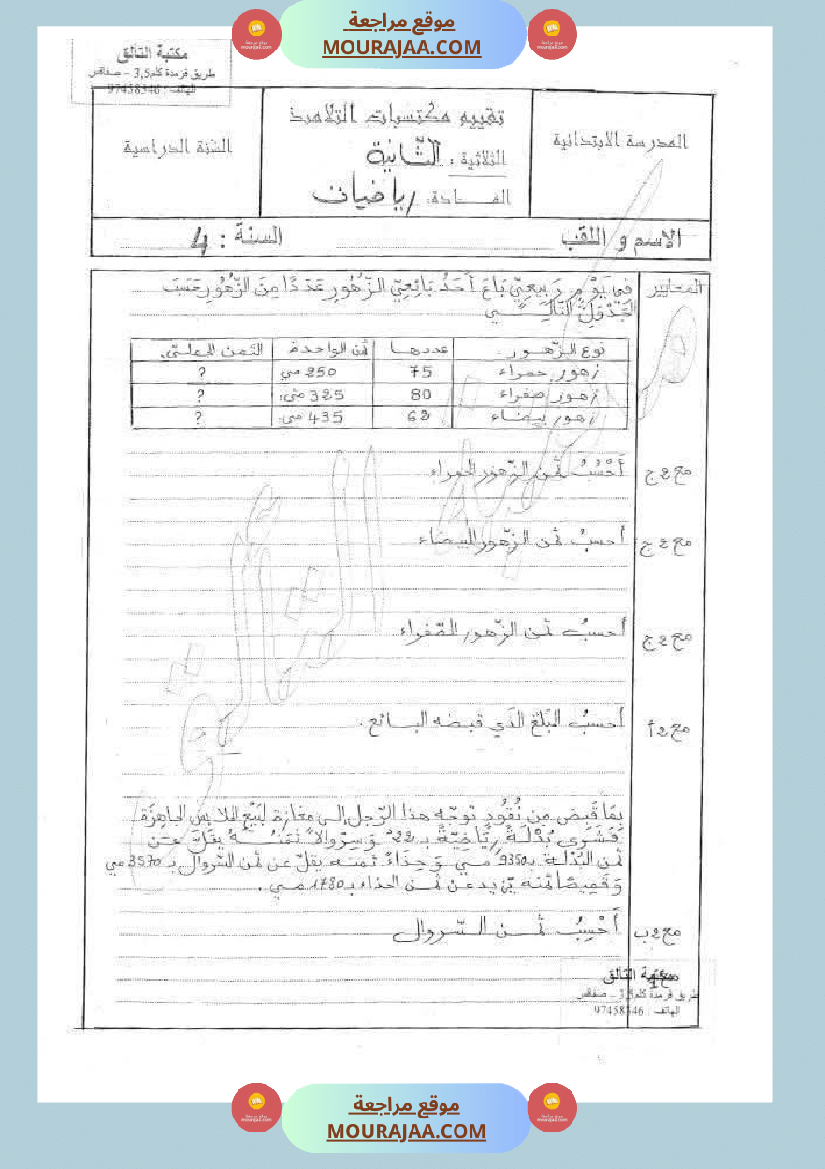 موقع مراجعة
MOURAJAA.COM
مكتبة التالق
طريق قرمدة كلم 3,5 - صفاقس
الهاتف : 97458346
المدرسة الابتدائية
تقييم مكتسبات التلاميذ
الثلاثية : الثّانية
المادة: رياضيات
السّنة الدراسية
الاسم و اللقب
السنة : 4
المعايير
في يَوْمٍ رَبِيعِيٍّ بَاعَ أَحَدُ بَائِعِيّ الزّهُورِ عَدَدًا مِنَ الزّهُورِ حَسَبَ
الجَدْوَلِ التَّالِي
نوع الزّهور عددها ثمن الواحدة الثمن الجملي
زهور حمراء 75 250 مي ?
زهور صفراء 80 325 مي ?
زهور بيضاء 62 435 مي ?
مع 2 ج أَحْسُبُ ثمن الزّهور الحمراء
مع 2 ج أحسبُ ثمن الزّهور البيضاء
مع 2 ج أحسبُ ثمن الزّهور الصّفراء
مع 2 أ أحسبُ المبلغ الذي قبضه البائع .
بِمَا قَبِضَ مِن نُقُودٍ توجّه هذا الرّجل إلى مغازة لبيع الملابس الجاهزة
فشرى بدلة رياضيّة بـ 22د وسروالا ثمنه يقلّ عن
ثمن البدلة بـ 9350 مي وحذاء ثمنه يقلّ عن ثمن السّروال بـ 3570 مي
وقميصا ثمنه يزيد عن ثمن الحذاء بـ 1730 مي .
مع 2 ب أَحْسِبُ ثمن السّروال
مكتبة التالق
طريق قرمدة كلم 3,5 - صفاقس
الهاتف : 97458346
موقع مراجعة
MOURAJAA.COM